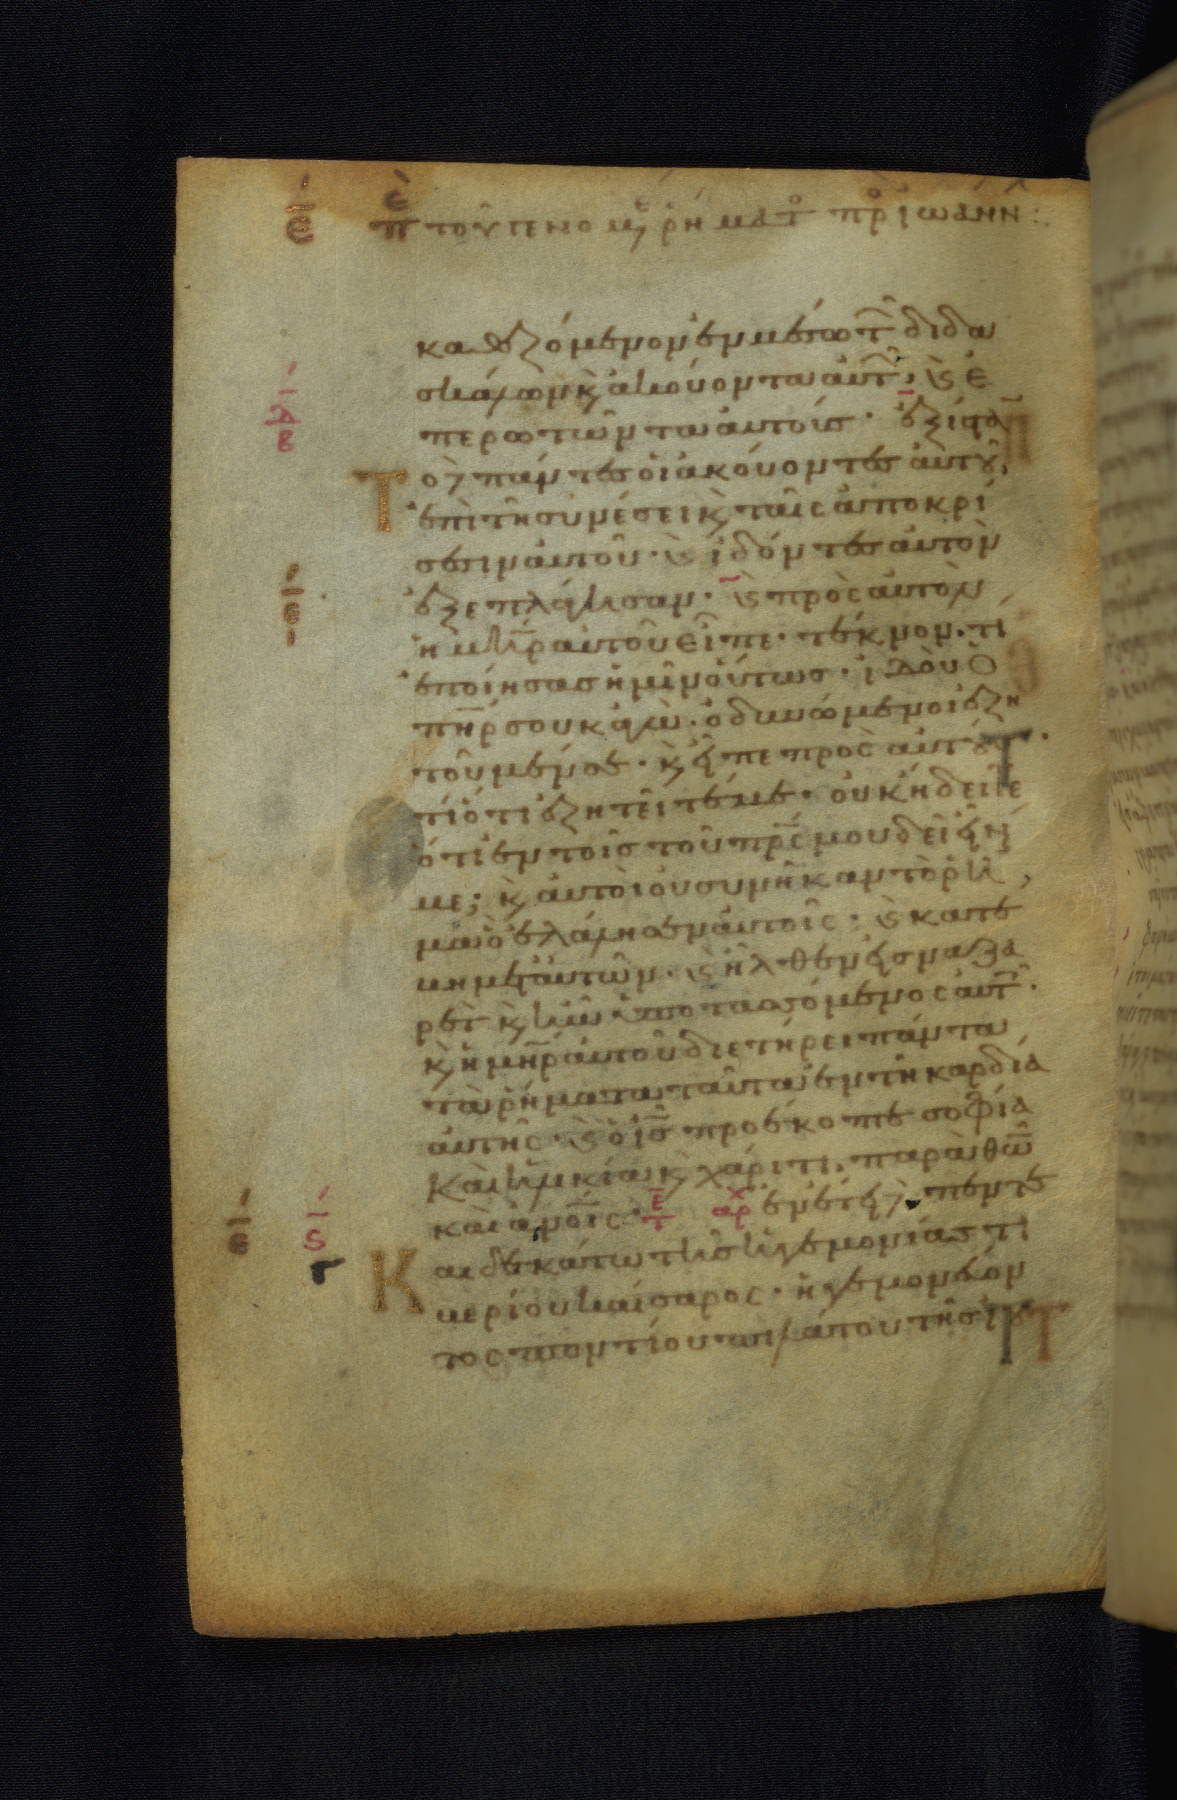 Ε ΠΕ ΤΟΥ ΓΕΝΟΜΕ ΡΗΜΑΤΟ ΠΡΟ ΙΩΑΝΝ:
καθεζόμενον ἐν μέσω τῶ διδα
σκάλων κ ἀκούοντα αὐτῶ· κ ἐ
περωτῶντα αὐτοῖσ· ἐξίσταν
Το δὲ πάντεσ οἱ ἀκούοντεσ αὐτοῦ,
ἐπὶ τῆ συνέσει κ ταῖς ἀποκρί
σεσιν αὐτοῦ· κ ἰδόντεσ αὐτὸν
ἐξεπλάγησαν· κ πρὸς αὐτὸν
ἡ μηρ αὐτοῦ εἶπε· τέκνον· τί
ἐποίησασ ἡμῖν οὕτωσ· ἰδοὺ ὁ
πηρ σου κἀγὼ· ὀδυνώμενοι ἐζη
τοῦμέν σε· κ εἶπε πρὸς αὐτούσ·
τί ὅτι ἐζητεῖτέ με· οὐκ ἤδειτε
ὅτι ἐν τοῖσ τοῦ πρς μου δεῖ εἶναί
με; κ αὐτοὶ οὐ συνῆκαν τὸ ῥῆ
μα ὃ ἐλάλησεν αὐτοῖς· κ κατέ
βη μετ αὐτῶν· κ ἦλθεν εἰσ ναζα
ρὲτ κ ἦν ὑποτασσόμενος αὐτοῖ·
κ ἡ μηρ αὐτοῦ διετήρει πάντα
τὰ ῥήματα ταῦτα ἐν τῆ καρδία
αὐτῆς· κ ὁ ισ προέκοπτε σοφία
Καὶ ἡλικία κ χάριτι, παρὰ θω
καὶ ανοις· τε αρχ ἐν ἔτει δὲ πεντε
Και δεκάτω τῆσ ἡγεμονίασ τι
βερίου καίσαρος· ἡγεμονεύον
τος ποντίου πιλάτου τῆσ ἰου